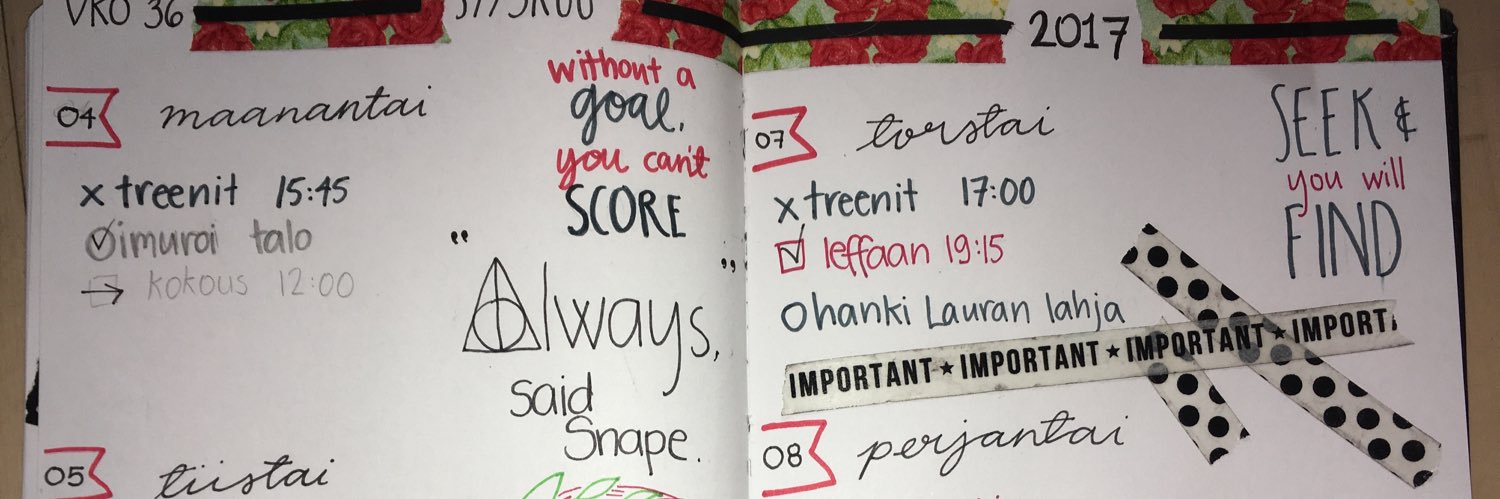 VKO 36
SYYSKUU
04 maanantai
x treenit 15:45
imuroi talo
→ kokous 12:00
without a
goal,
you can't
SCORE
"Always,"
said
Snape.
05 tiistai
2017
07 torstai
x treenit 17:00
leffaan 19:15
O hanki Lauran lahja
SEEK &
you will
FIND
IMPORTANT ★ IMPORTANT ★ IMPORTANT ★ IMPORT
08 perjantai